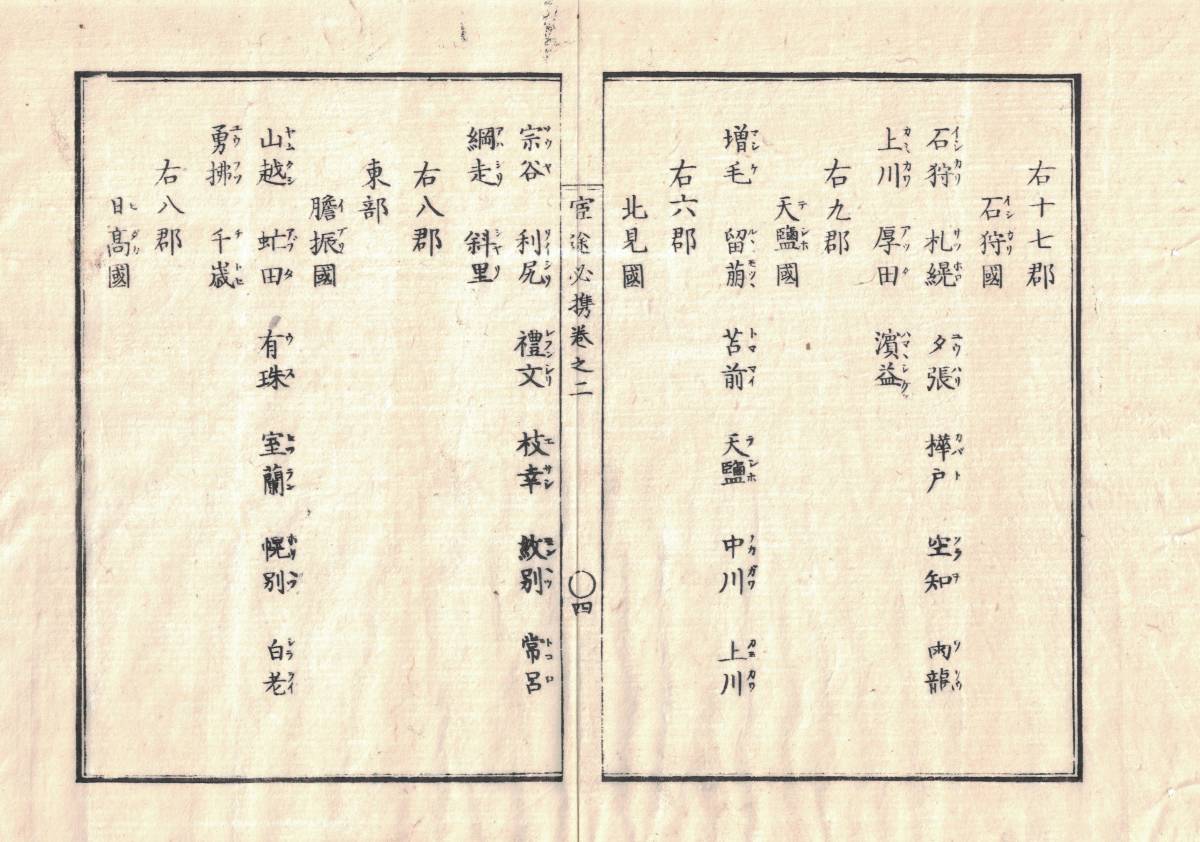 右十七郡
石狩國
石狩 札幌 夕張 樺戸 空知 雨龍
上川 厚田 濱益
右九郡
天鹽國
増毛 留萠 苫前 天鹽 中川 上川
右六郡
北見國
宦途必携巻之二 〇四
宗谷 利尻 禮文 枝幸 紋別 常呂
網走 斜里
右八郡
東部
膽振國
山越 虻田 有珠 室蘭 幌別 白老
勇拂 千歳
右八郡
日髙國